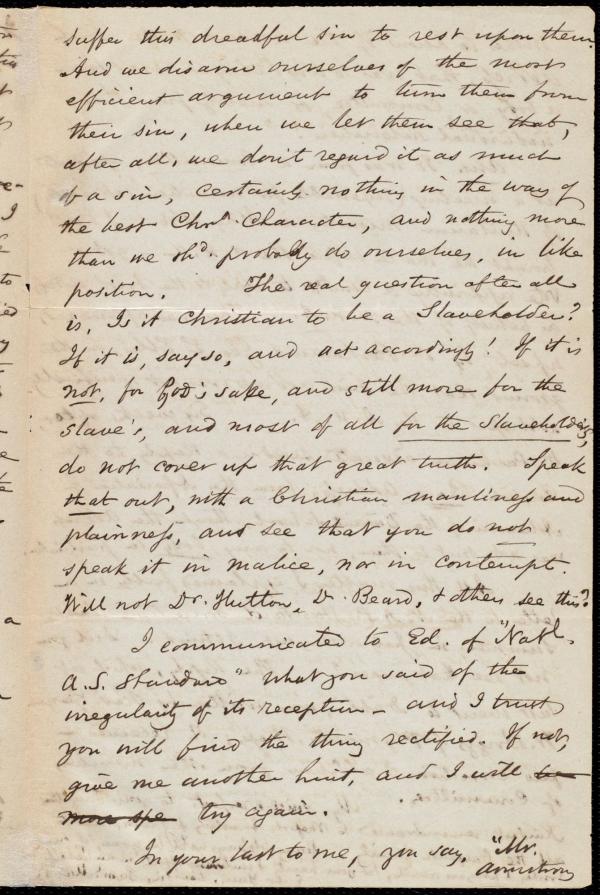 suffer this dreadful sin to rest upon them.
And we disarm ourselves of the most
efficient argument to turn them from
their sin, when we let them see that,
after all, we don't regard it as much
of a sin, certainly nothing in the way of
the best Chrn. Character, and nothing more
than we shd. probably do ourselves, in like
position. The real question after all
is, Is it Christian to be a Slaveholder?
If it is, say so, and act accordingly! If it is
not, for God's sake, and still more for the
slave's, and most of all for the Slaveholder's,
do not cover up that great truth. Speak
that out, with a Christian manliness and
plainness, and see that you do not
speak it in malice, nor in contempt.
Will not Dr. Hutton, Dr. Beard, & others see this?
I communicated to Ed. of "Natl.
A. S. Standard" what you said of the
irregularity of its reception - and I trust
you will find the thing rectified. If not,
give me another hint, and I will be
more spe try again.
In your last to me, you say, "Mr.
Armstrong